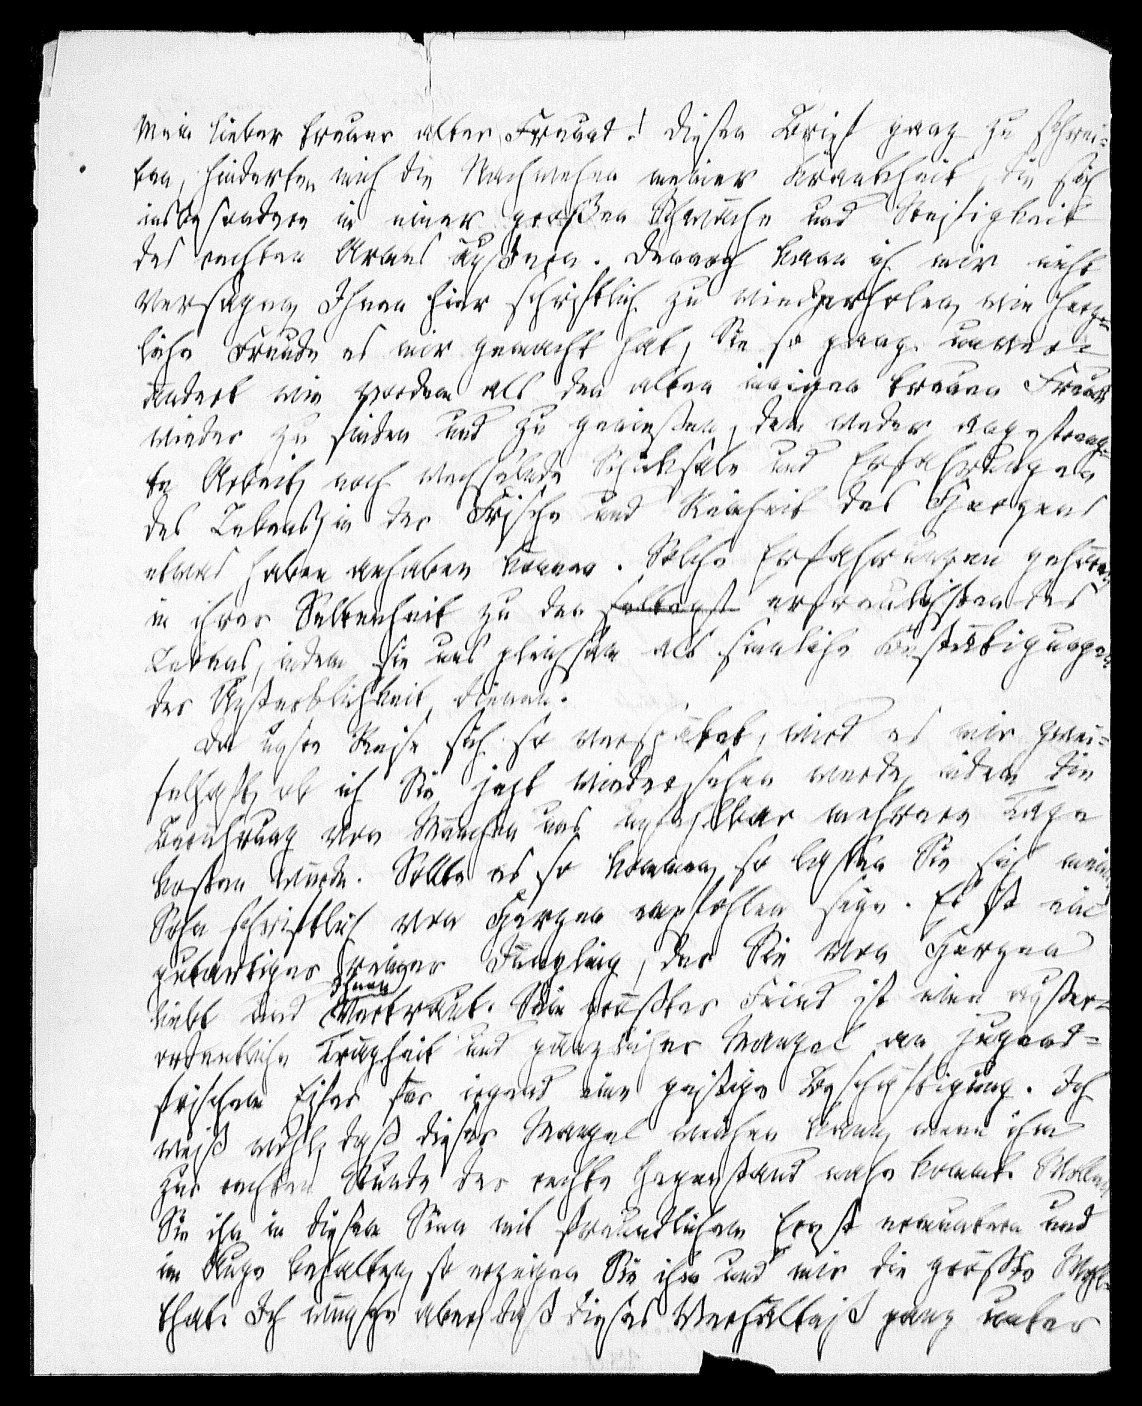 Mein lieber treuer alter Freund! Diesen Brief ganz zu schrei-
ben, hinderten mich die Nachwehen meiner Krankheit, die sich
insbesondere in einer großen Schwäche und Steifigkeit
des rechten Armes äußern. Dennoch kann ich mir nicht
versagen Ihnen hier schriftlich zu wiederholen, wie herz-
liche Freude es mir gemacht hat, Sie so ganz unver-
ändert wie vordem als den alten innigen treuen Freund
wieder zu finden und zu genießen, dem weder angestreng-
te Arbeit, noch wechselnde Schicksale und Erfahrungen
des Lebens, in der Frische und Reinheit des Herzens
etwas haben anhaben können. Solche Erfahrungen gehören
in ihrer Seltenheit zu den erfreulichsten des
Lebens, indem sie uns gleichsam als sinnliche Bestätigungen
der Unsterblichkeit dienen.
Da unsre Reise sich so verspätet, wird es mir zwei-
felhaft, ob ich Sie jetzt wiedersehen werde, indem die
Berührung von München uns unfehlbar mehrere Tage
kosten würde. Sollte es so kommen, so lassen Sie sich meinen
Sohn schriftlich von Herzen empfohlen seyn. Es ist ein
gutartiger reiner Jüngling, der Sie von Herzen
liebt und Ihnen vertraut. Sein größter Feind ist eine außer-
ordentliche Trägheit und gänzlicher Mangel an jugend-
frischem Eifer für irgend eine geistige Beschäftigung. Ich
weiß wohl, daß dieser Mangel weichen kann, wenn ihm
zur rechten Stunde der rechte Gegenstand nahe kommt. Wollen
Sie ihn in diesem Sinn mit freundlichem Ernst ermuntern und
im Auge behalten, so erzeigen Sie ihm und mir die größte Wohl-
that. Ich wünsche aber, daß dieses Verhältniß ganz unter